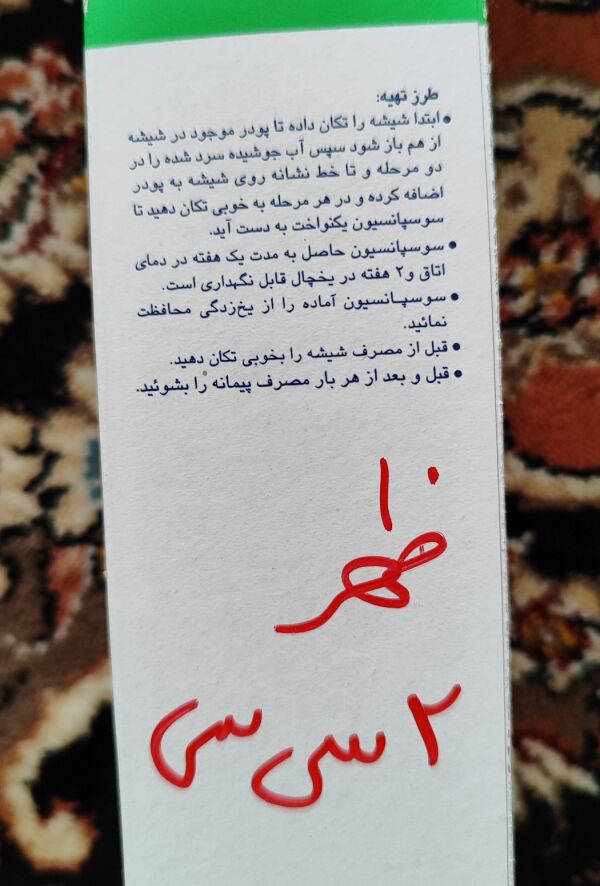 طرز تهیه:
• ابتدا شیشه را تکان داده تا پودر موجود در شیشه
از هم باز شود سپس آب جوشیده سرد شده را در
دو مرحله و تا خط نشانه روی شیشه به پودر
اضافه کرده و در هر مرحله به خوبی تکان دهید تا
سوسپانسیون یکنواخت به دست آید.
• سوسپانسیون حاصل به مدت یک هفته در دمای
اتاق و ۲ هفته در یخچال قابل نگهداری است.
• سوسپانسیون آماده را از یخ‌زدگی محافظت
نمائید.
• قبل از مصرف شیشه را بخوبی تکان دهید.
• قبل و بعد از هر بار مصرف پیمانه را بشوئید.
۱۰
ظهر
۲ سی سی